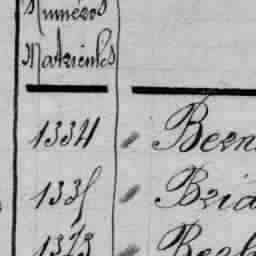 Numéros
Matricules
1334 " Bern
1335 " Bria
1373 "